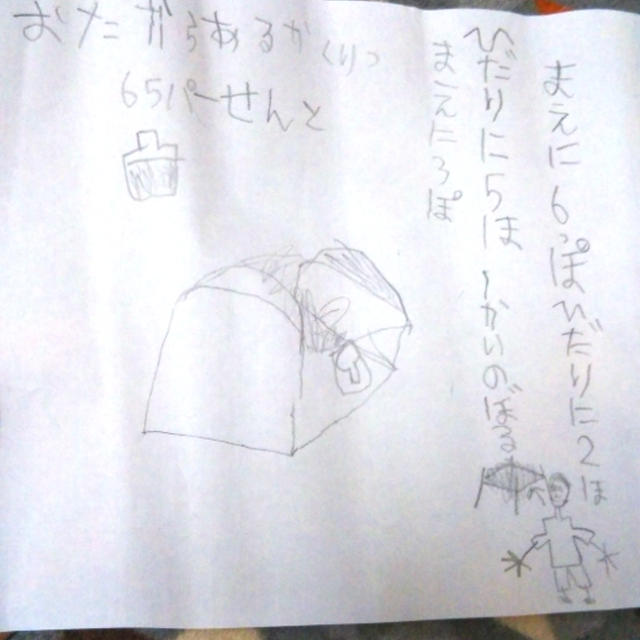 おたからあるかくりつ
65パーせんと
まえに6っぽひだりに2ほ
ひだりに5ほ1かいのぼる
まえに3ぽ